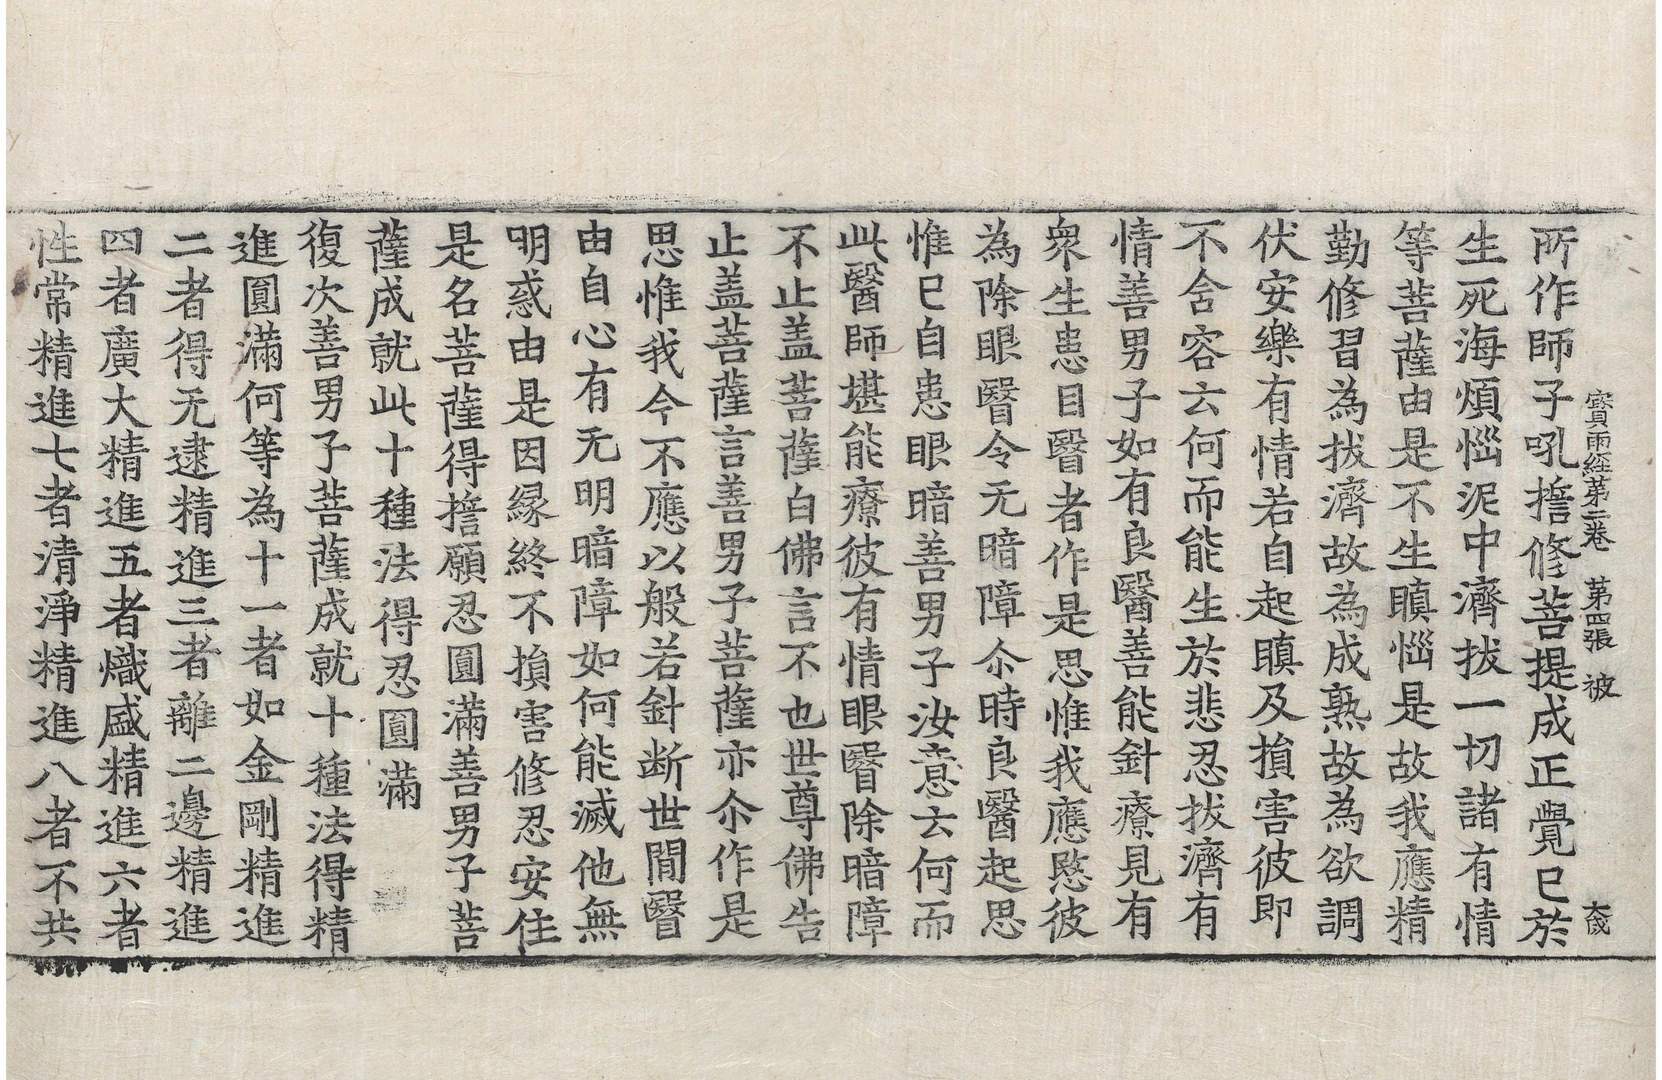 寶雨經第二卷　第四張　被　大蔵
所作師子吼誓修菩提成正覺已於
生死海煩惱泥中濟拔一切諸有情
等菩薩由是不生瞋惱是故我應精
勤修習為拔濟故為成熟故為欲調
伏安樂有情若自起瞋及損害彼即
不舍容云何而能生於悲忍拔濟有
情善男子如有良醫善能針療見有
衆生患目醫者作是思惟我應愍彼
為除眼醫令无暗障尒時良醫起思
惟已自患眼暗善男子汝意云何而
此醫師堪能療彼有情眼醫除暗障
不止盖菩薩白佛言不也世尊佛告
止盖菩薩言善男子菩薩亦尒作是
思惟我今不應以般若針断世間醫
由自心有无明暗障如何能滅他無
明惑由是因緣終不損害修忍安住
是名菩薩得誓願忍圓滿善男子菩
薩成就此十種法得忍圓滿
復次善男子菩薩成就十種法得精
進圓滿何等為十一者如金剛精進
二者得无逮精進三者離二邊精進
四者廣大精進五者熾盛精進六者
性常精進七者清淨精進八者不共